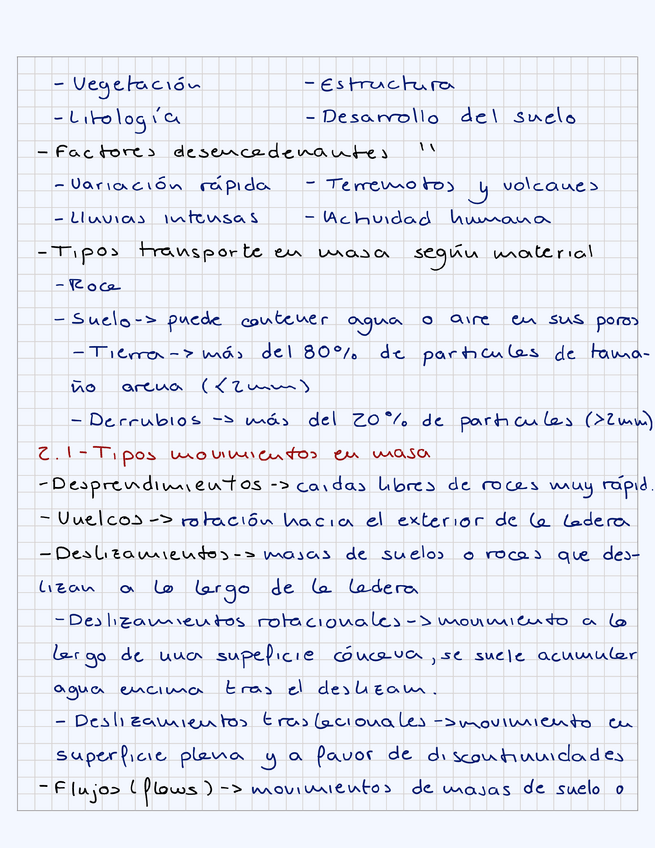 - Vegetación - Estructura
- Litología - Desarrollo del suelo
- Factores desencadenantes "
- Variación rápida - Terremotos y volcanes
- Lluvias intensas - Actividad humana
- Tipos transporte en masa según material
- Roca
- Suelo -> puede contener agua o aire en sus poros
- Tierra -> más del 80% de particulas de tama-
ño arena (<2mm)
- Derrubios -> más del 20% de particulas (>2mm)
2.1 - Tipos movimientos en masa
- Desprendimientos -> caidas libres de rocas muy rápid.
- Vuelcos -> rotación hacia el exterior de la ladera
- Deslizamientos -> masas de suelos o rocas que des-
lizan a lo largo de la ladera
- Deslizamientos rotacionales -> movimiento a lo
largo de una supeficie cóncava, se suele acumular
agua encima tras el deslizam.
- Deslizamientos traslacionales -> movimiento en
superficie plana y a favor de discontinuidades
- Flujos (flows) -> movimientos de masas de suelo o